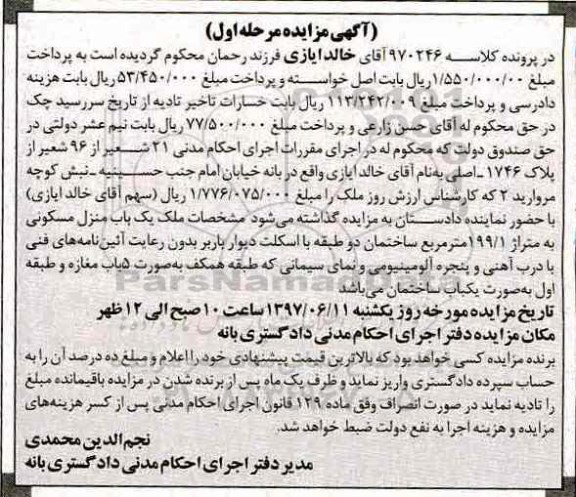 (آگهی مزایده مرحله اول)
در پرونده کلاسه ۹۷۰۲۴۶ آقای خالد ایازی فرزند رحمان محکوم گردیده است به پرداخت
مبلغ ۱/۵۵۰/۰۰۰/۰۰ ریال بابت اصل خواسته و پرداخت مبلغ ۵۳/۴۵۰/۰۰۰ ریال بابت هزینه
دادرسی و پرداخت مبلغ ۱۱۳/۲۴۲/۰۰۹ ریال بابت خسارات تاخیر تادیه از تاریخ سررسید چک
در حق محکوم له آقای حسن زارعی و پرداخت مبلغ ۷۷/۵۰۰/۰۰۰ ریال بابت نیم عشر دولتی در
حق صندوق دولت که محکوم له در اجرای مقررات اجرای احکام مدنی ۲۱ شعیر از ۹۶ شعیر از
پلاک ۱۷۴۶ـ اصلی به‌نام آقای خالد ایازی واقع در بانه خیابان امام جنب حسینیه ـ نبش کوچه
مروارید ۲ که کارشناس ارزش روز ملک را مبلغ ۱/۷۷۶/۰۷۵/۰۰۰ ریال (سهم آقای خالد ایازی)
با حضور نماینده دادستان به مزایده گذاشته می‌شود مشخصات ملک یک باب منزل مسکونی
به متراژ ۱۹۹/۱ مترمربع ساختمان دو طبقه با اسکلت دیوار باربر بدون رعایت آئین‌نامه‌های فنی
با درب آهنی و پنجره آلومینیومی و نمای سیمانی که طبقه همکف به‌صورت ۵باب مغازه و طبقه
اول به‌صورت یکباب ساختمان می‌باشد
تاریخ مزایده مورخه روز یکشنبه ۱۳۹۷/۰۶/۱۱ ساعت ۱۰ صبح الی ۱۲ ظهر
مکان مزایده دفتر اجرای احکام مدنی دادگستری بانه
برنده مزایده کسی خواهد بود که بالاترین قیمت پیشنهادی خود را اعلام و مبلغ ده درصد آن را به
حساب سپرده دادگستری واریز نماید و ظرف یک ماه پس از برنده شدن در مزایده باقیمانده مبلغ
را تادیه نماید در صورت انصراف وفق ماده ۱۲۹ قانون اجرای احکام مدنی پس از کسر هزینه‌های
مزایده و هزینه اجرا به نفع دولت ضبط خواهد شد.
نجم‌الدین محمدی
مدیر دفتر اجرای احکام مدنی دادگستری بانه